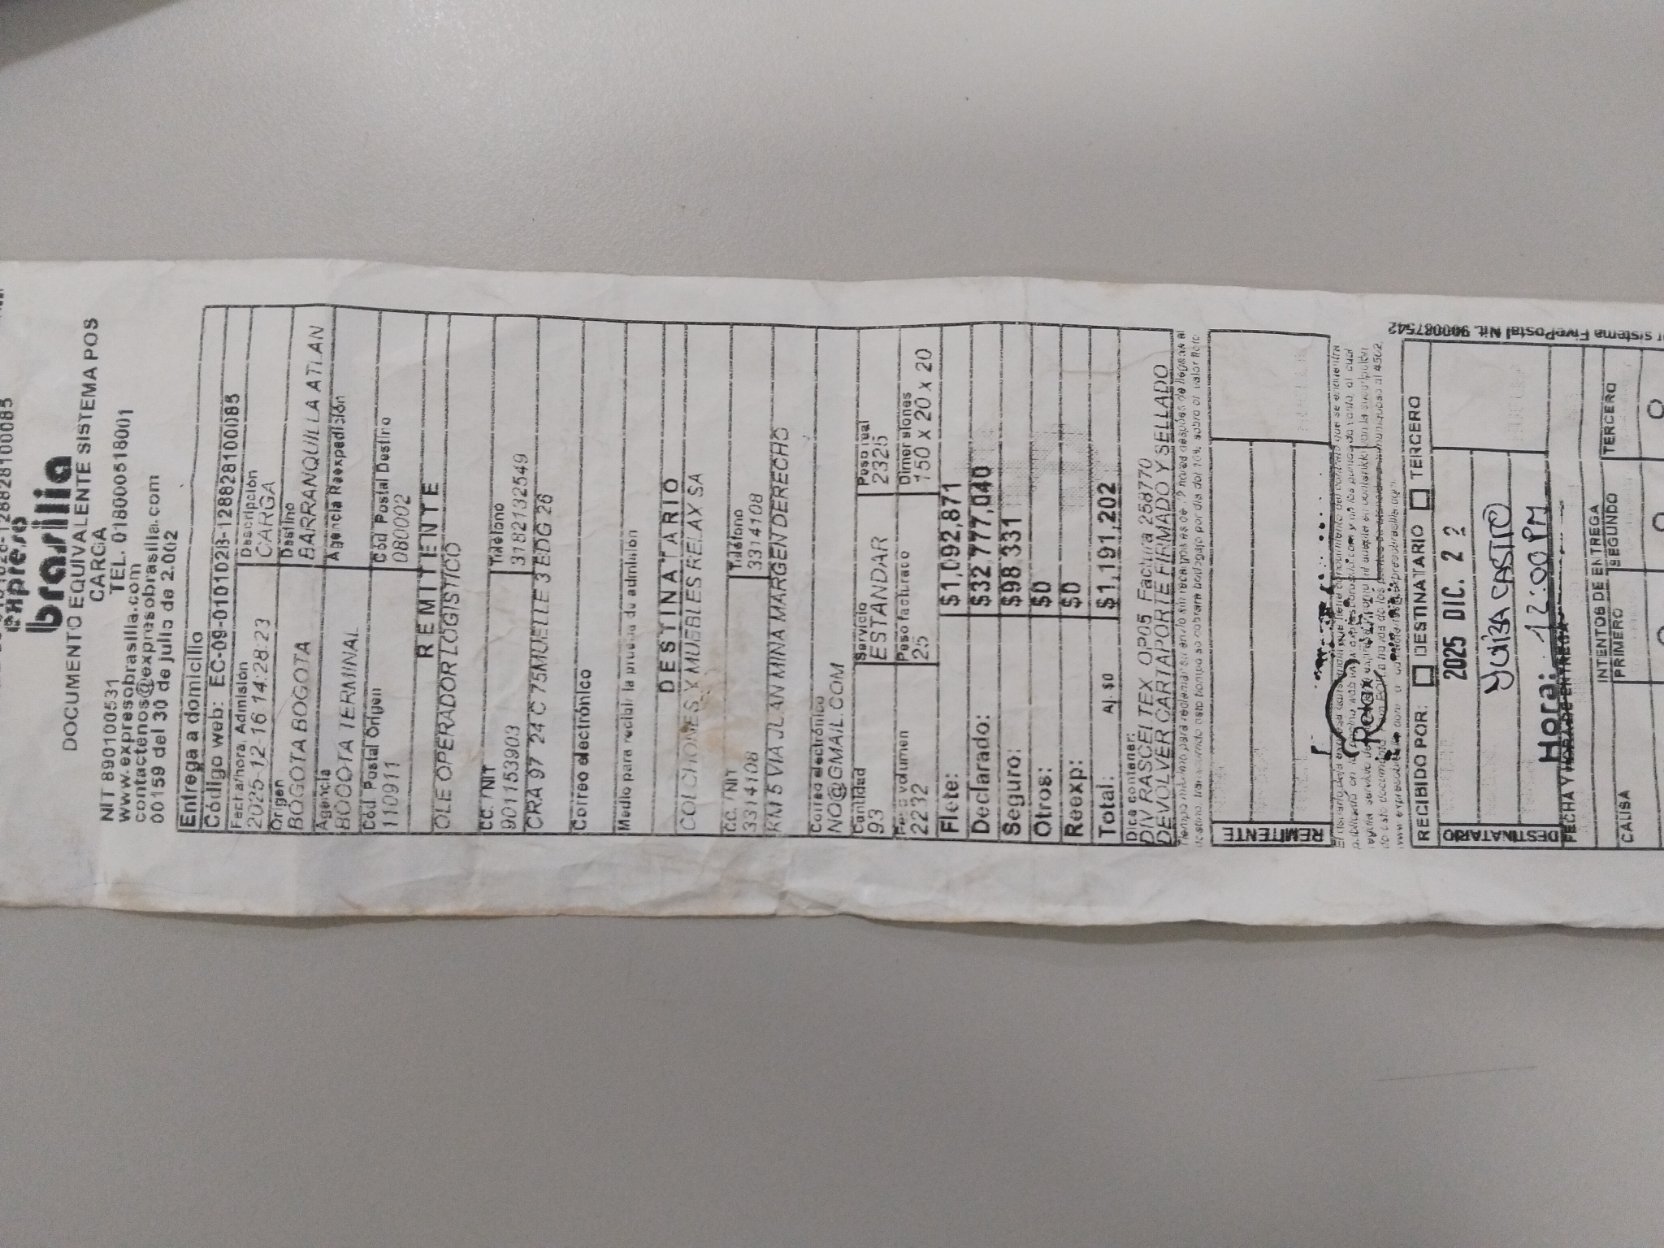 expreso
brasilia
DOCUMENTO EQUIVALENTE SISTEMA POS
CARGA
NIT 890100531 TEL. 018000518001
www.expresobrasilia.com
contactenos@expresobrasilia.com
00159 del 30 de julio de 2.002
Entrega a domicilio
Código web: EC-09-0101028-128828100085
Fecha/hora Admisión Descripción
2025-12-16 14:28:23 CARGA
Origen Destino
BOGOTA BOGOTA BARRANQUILLA ATLAN
Agencia Agencia Reexpedición
BOGOTA TERMINAL
Cód Postal Origen Cód Postal Destino
110911 080002
REMITENTE
OLE OPERADOR LOGISTICO
CC. / NIT Teléfono
901153903 3182132549
CRA 97 24 C 75 MUELLE 3 EDG 26
Correo electrónico
Medio para recibir la prueba de admisión
DESTINATARIO
COLCHONES Y MUEBLES RELAX SA
CC. / NIT Teléfono
3314108 3314108
KM 5 VIA JUAN MINA MARGEN DERECHO
Correo electrónico
NO@GMAIL.COM
Cantidad Servicio Peso real
93 ESTANDAR 2325
Peso volumen Peso facturado Dimensiones
2232 25 150 x 20 x 20
Flete: $1,092,871
Declarado: $32,777,040
Seguro: $98,331
Otros: $0
Reexp: $0
Total: Aj. $0 $1,191,202
Dice contener:
DIV RASCELTEX OP05 Factura 258770
DEVOLVER CARTAPORTE FIRMADO Y SELLADO
REMITENTE
Relax
RECIBIDO POR: DESTINATARIO TERCERO
DESTINATARIO
2025 DIC. 2 2
Yuliza Castro
Hora: 12:00 PM
FECHA Y HORA DE ENTREGA
INTENTOS DE ENTREGA
CAUSA PRIMERO SEGUNDO TERCERO
sistema FivePostal Nit. 900087542